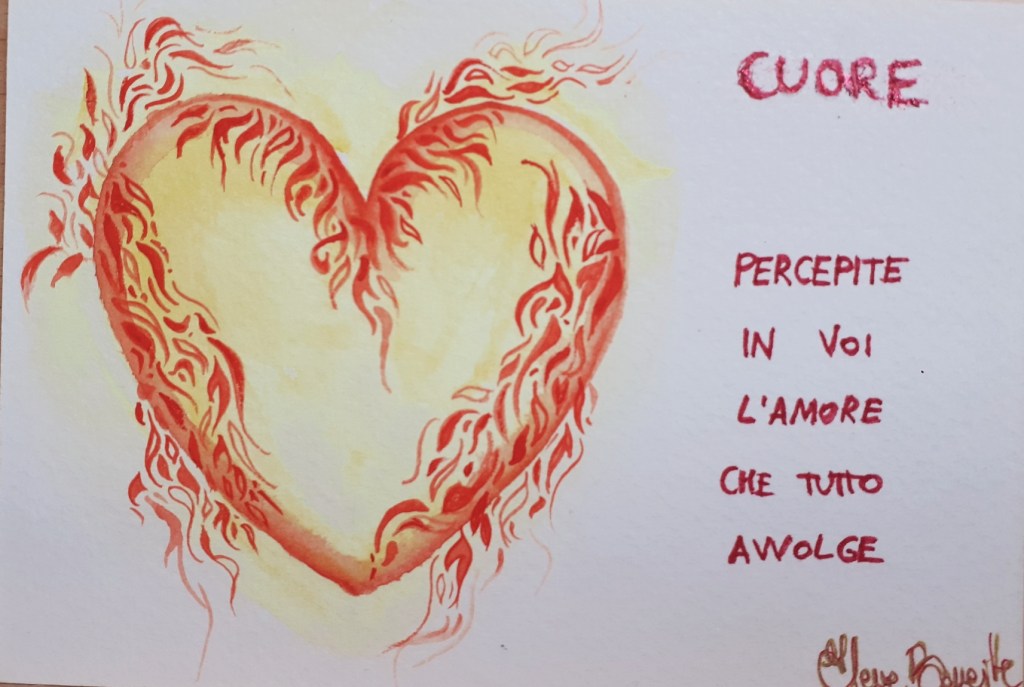 CUORE
PERCEPITE
IN VOI
L'AMORE
CHE TUTTO
AVVOLGE